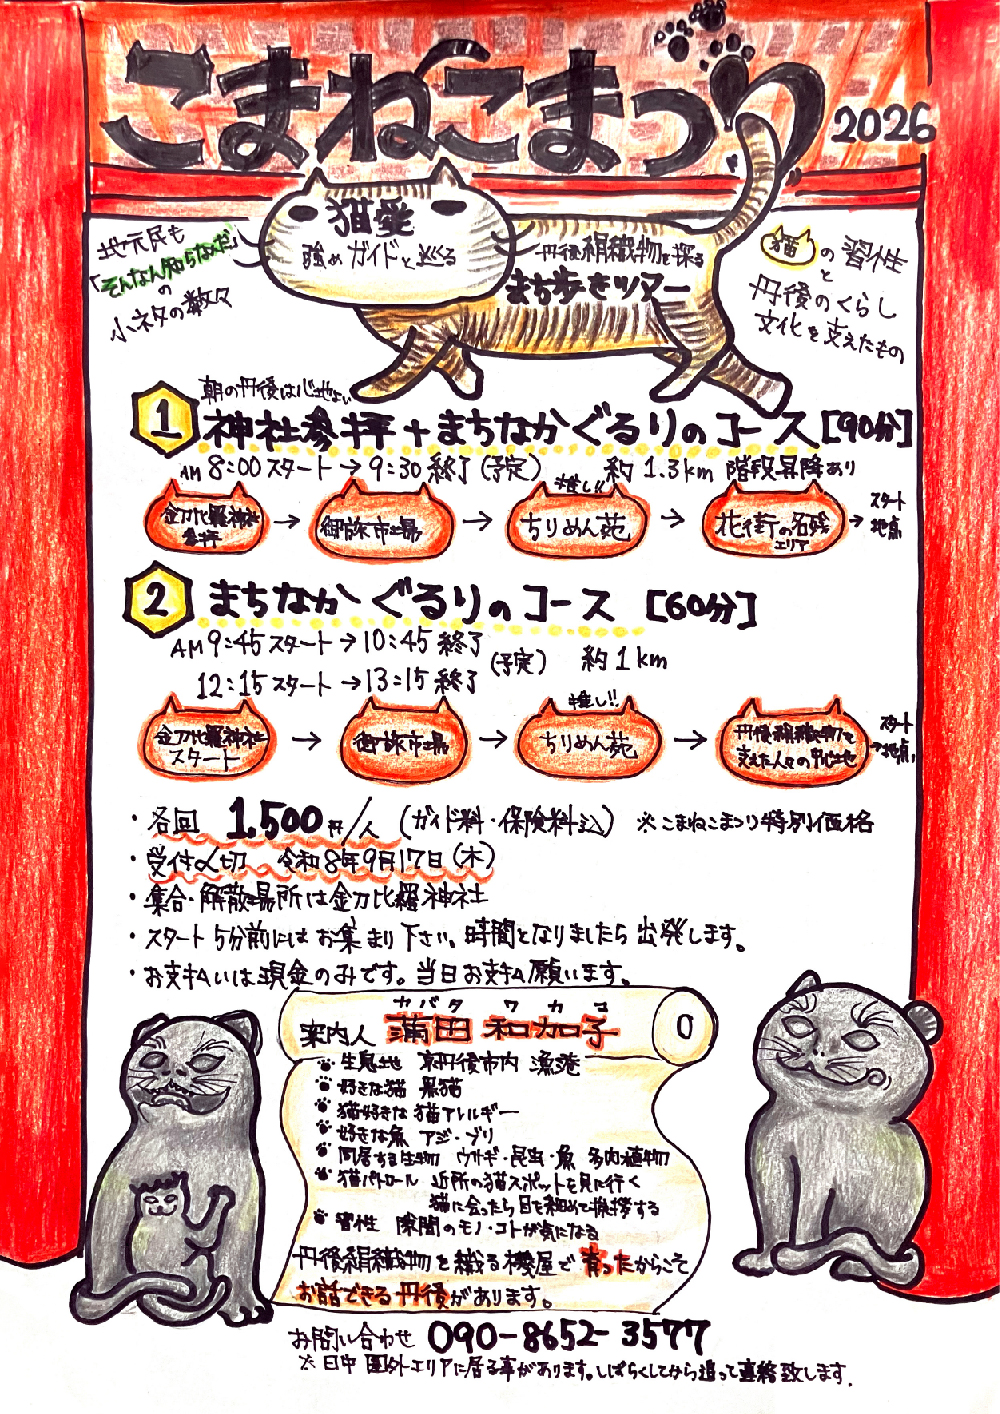 こまねこまつり
2026
地元民も
「そんなん知らなんだ」
の
小ネタの数々
猫愛
強めガイドと巡る
丹後絹織物を探る
まち歩きツアー
猫の習性
と
丹後のくらし
文化を支えたもの
朝の丹後は心地よい
1 神社参拝+まちなかぐるりのコース [90分]
AM 8:00 スタート → 9:30 終了 (予定) 約 1.3km 階段昇降あり
推し!!
金刀比羅神社
参拝
→ 御旅市場 → ちりめん苑 → 花街の名残
エリア
→ スタート
地点
2 まちなかぐるりのコース [60分]
AM 9:45 スタート → 10:45 終了
(予定) 約1km
12:15 スタート → 13:15 終了
推し!!
金刀比羅神社
スタート
→ 御旅市場 → ちりめん苑 → 丹後絹織物を
支えた人々の
→ スタート
地点
・各回 1.500円/人 (ガイド料・保険料込) ※こまねこまつり特別価格
・受付〆切 令和8年9月17日(木)
・集合・解散場所は金刀比羅神社
・スタート5分前にはお集まり下さい。時間となりましたら出発します。
・お支払いは現金のみです。当日お支払願います。
カバタ ワカコ
案内人 蒲田 和加子
生息地 京丹後市内 漁港
好きな猫 黒猫
猫好きな猫アレルギー
好きな魚 アジ・ブリ
同居する生物 ウサギ・昆虫・魚 多肉植物
猫パトロール 近所の猫スポットを見に行く
猫に会ったら目を細めて挨拶する
習性 隙間のモノ・コトが気になる
丹後絹織物を織る機屋で育ったからこそ
お話できる丹後があります。
お問い合わせ 090-8652-3577
※日中 圏外エリアに居る事があります。しばらくしてから追って連絡致します。